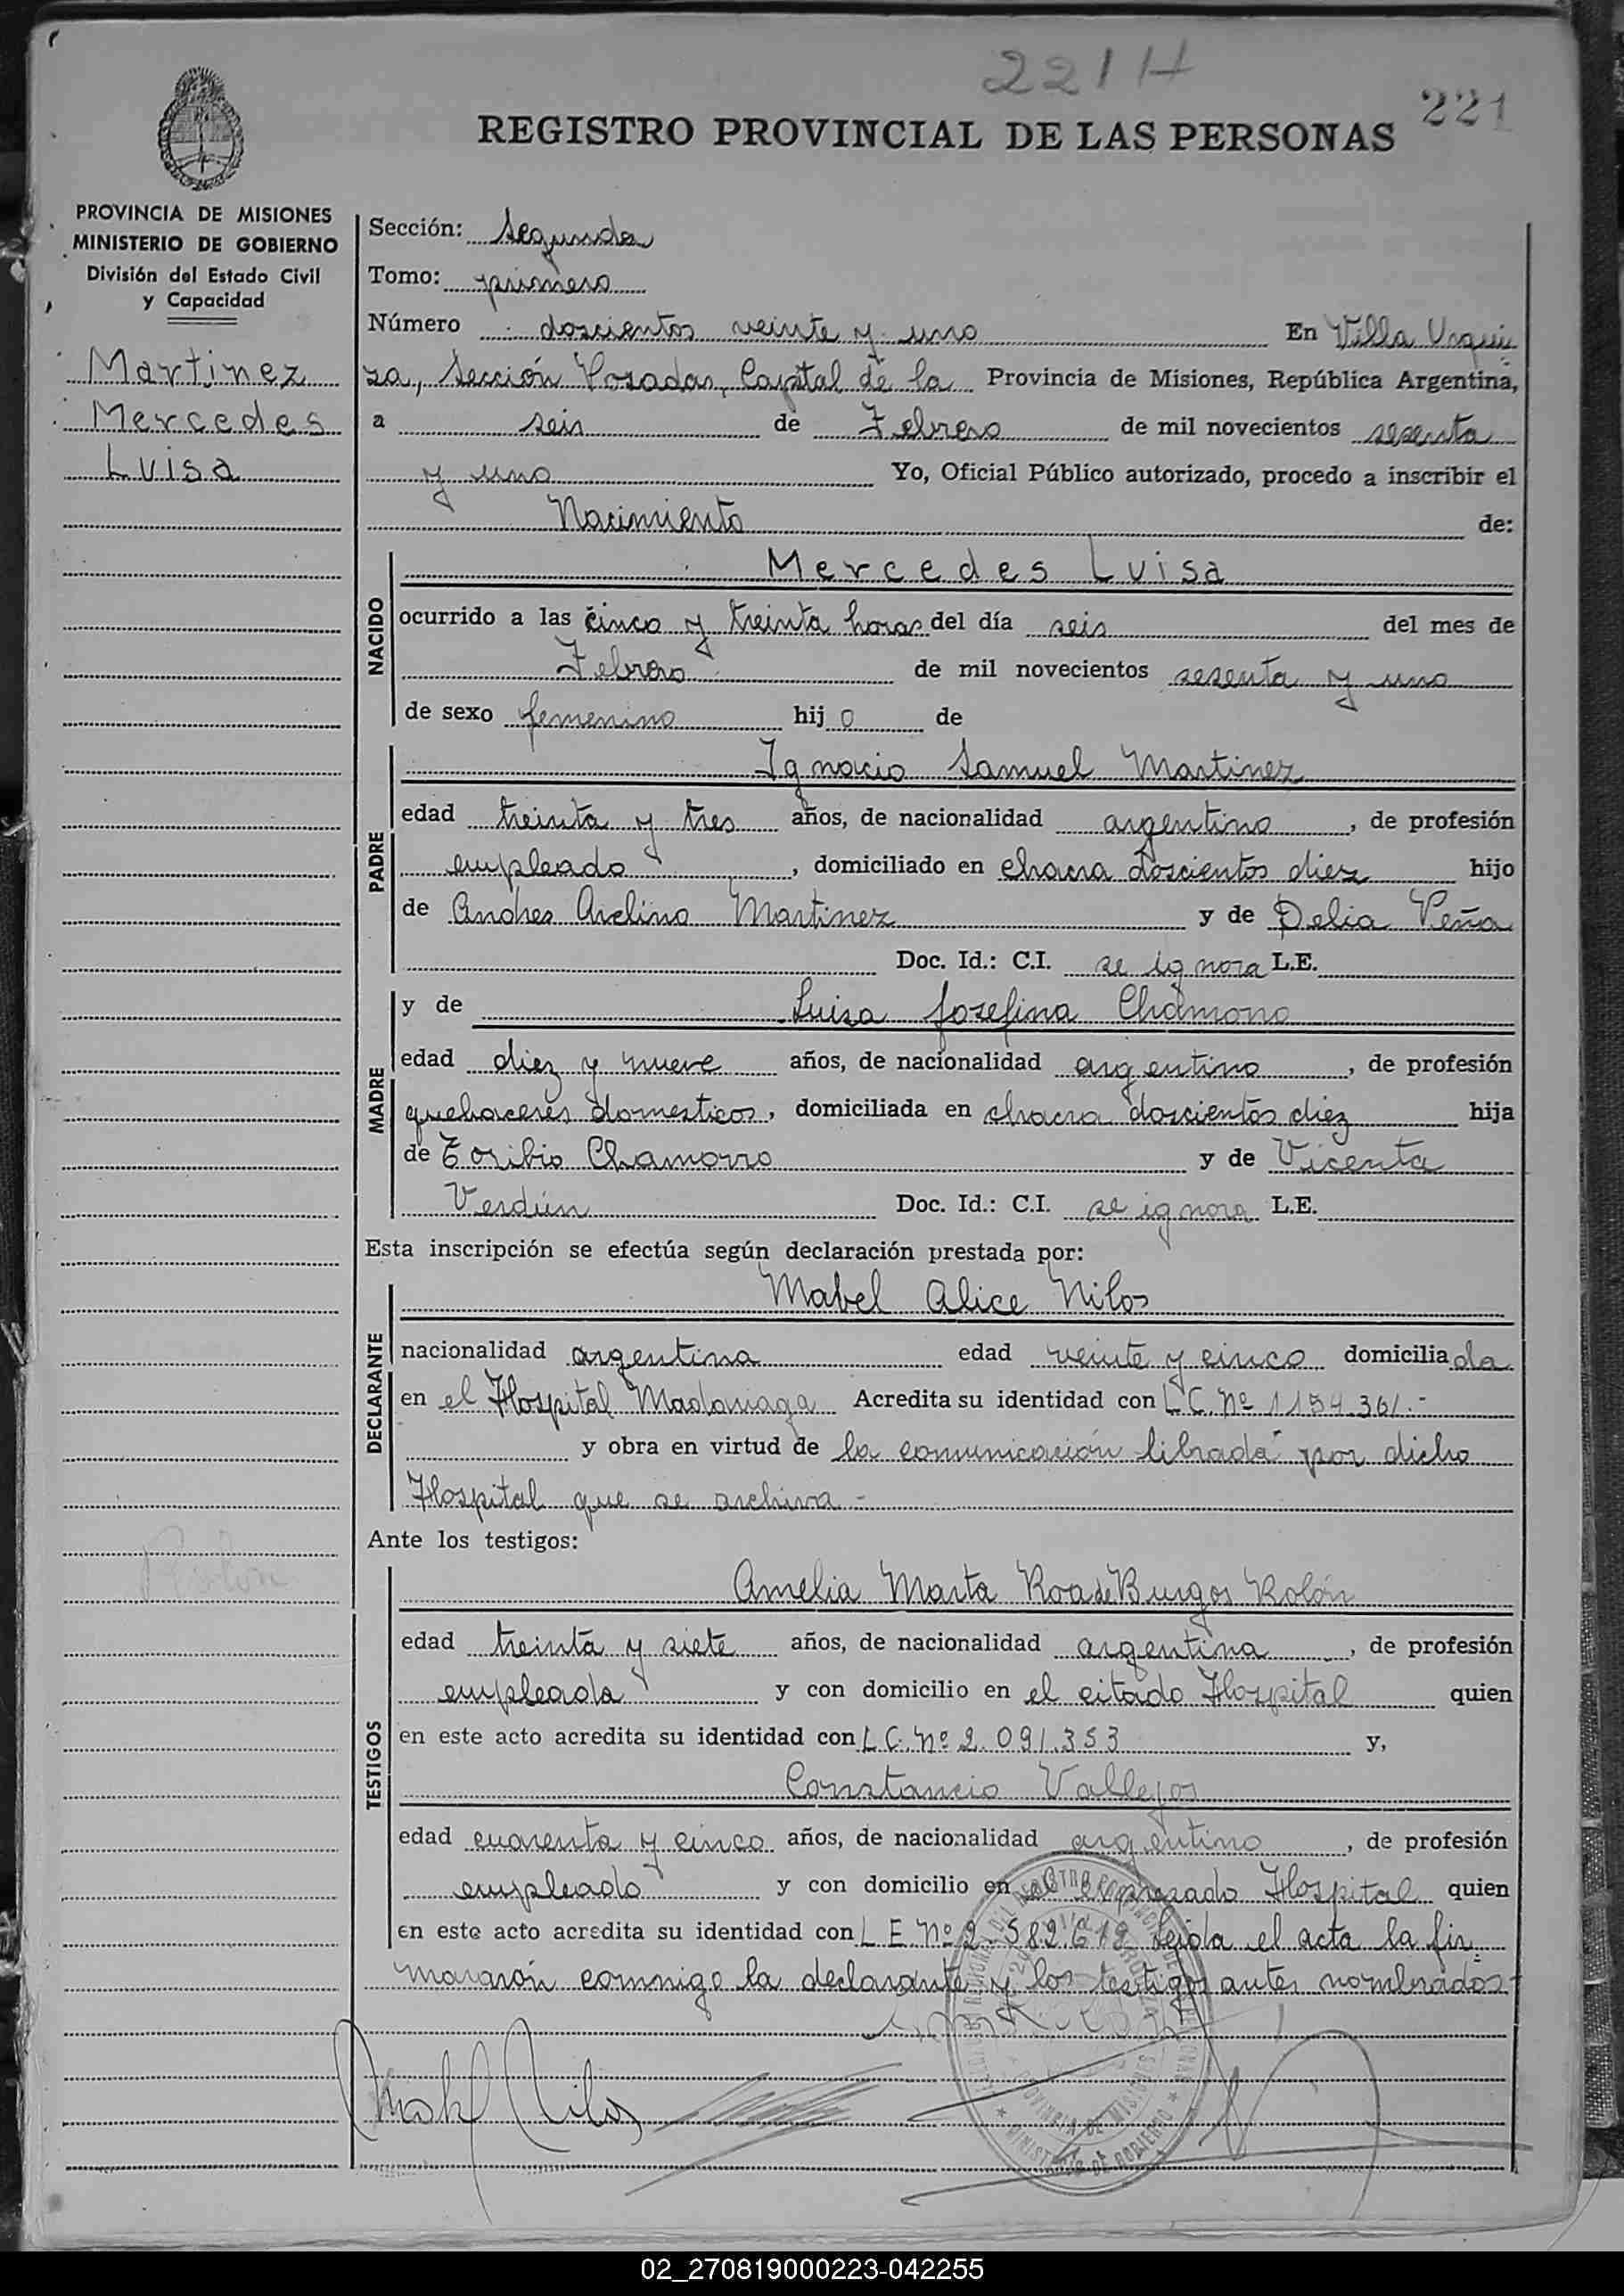 221 H
221
REGISTRO PROVINCIAL DE LAS PERSONAS
PROVINCIA DE MISIONES
MINISTERIO DE GOBIERNO
División del Estado Civil
y Capacidad
Martinez
Mercedes
Luisa
Sección: Segunda
Tomo: primero
Número doscientos veinte y uno En Villa Urqui
za, Sección Posadas, Capital de la Provincia de Misiones, República Argentina,
a seis de Febrero de mil novecientos sesenta
y uno Yo, Oficial Público autorizado, procedo a inscribir el
Nacimiento de:
NACIDO
Mercedes Luisa
ocurrido a las cinco y treinta horas del día seis del mes de
Febrero de mil novecientos sesenta y uno
de sexo femenino hijo de
PADRE
Ignacio Samuel Martinez
edad treinta y tres años, de nacionalidad argentino, de profesión
empleado, domiciliado en chacra doscientos diez hijo
de Andres Avelino Martinez y de Delia Peña
Doc. Id.: C.I. se ignora L.E.
MADRE
y de Luisa Josefina Chamorro
edad diez y nueve años, de nacionalidad argentino, de profesión
quehaceres domesticos, domiciliada en chacra doscientos diez hija
de Toribio Chamorro y de Vicenta
Verdún Doc. Id.: C.I. se ignora L.E.
Esta inscripción se efectúa según declaración prestada por:
DECLARANTE
Mabel Alice Nilos
nacionalidad argentina edad veinte y cinco domiciliada
en el Hospital Madariaga Acredita su identidad con L.C. Nº 1154.361.-
y obra en virtud de la comunicación librada por dicho
Hospital que se archiva.-
Ante los testigos:
TESTIGOS
Amelia Marta Roa de Burgos Rolón
edad treinta y siete años, de nacionalidad argentina, de profesión
empleada y con domicilio en el citado Hospital quien
en este acto acredita su identidad con L.C. Nº 2.091.353 y,
Constancio Vallejos
edad cuarenta y cinco años, de nacionalidad argentino, de profesión
empleado y con domicilio en el expresado Hospital quien
en este acto acredita su identidad con L E Nº 2.582.618 Leida el acta la fir
mararón conmigo la declarante y los testigos antes nombrados-
Mabel Nilos
PROVINCIA DE MISIONES
MINISTERIO DE GOBIERNO
02_270819000223-042255